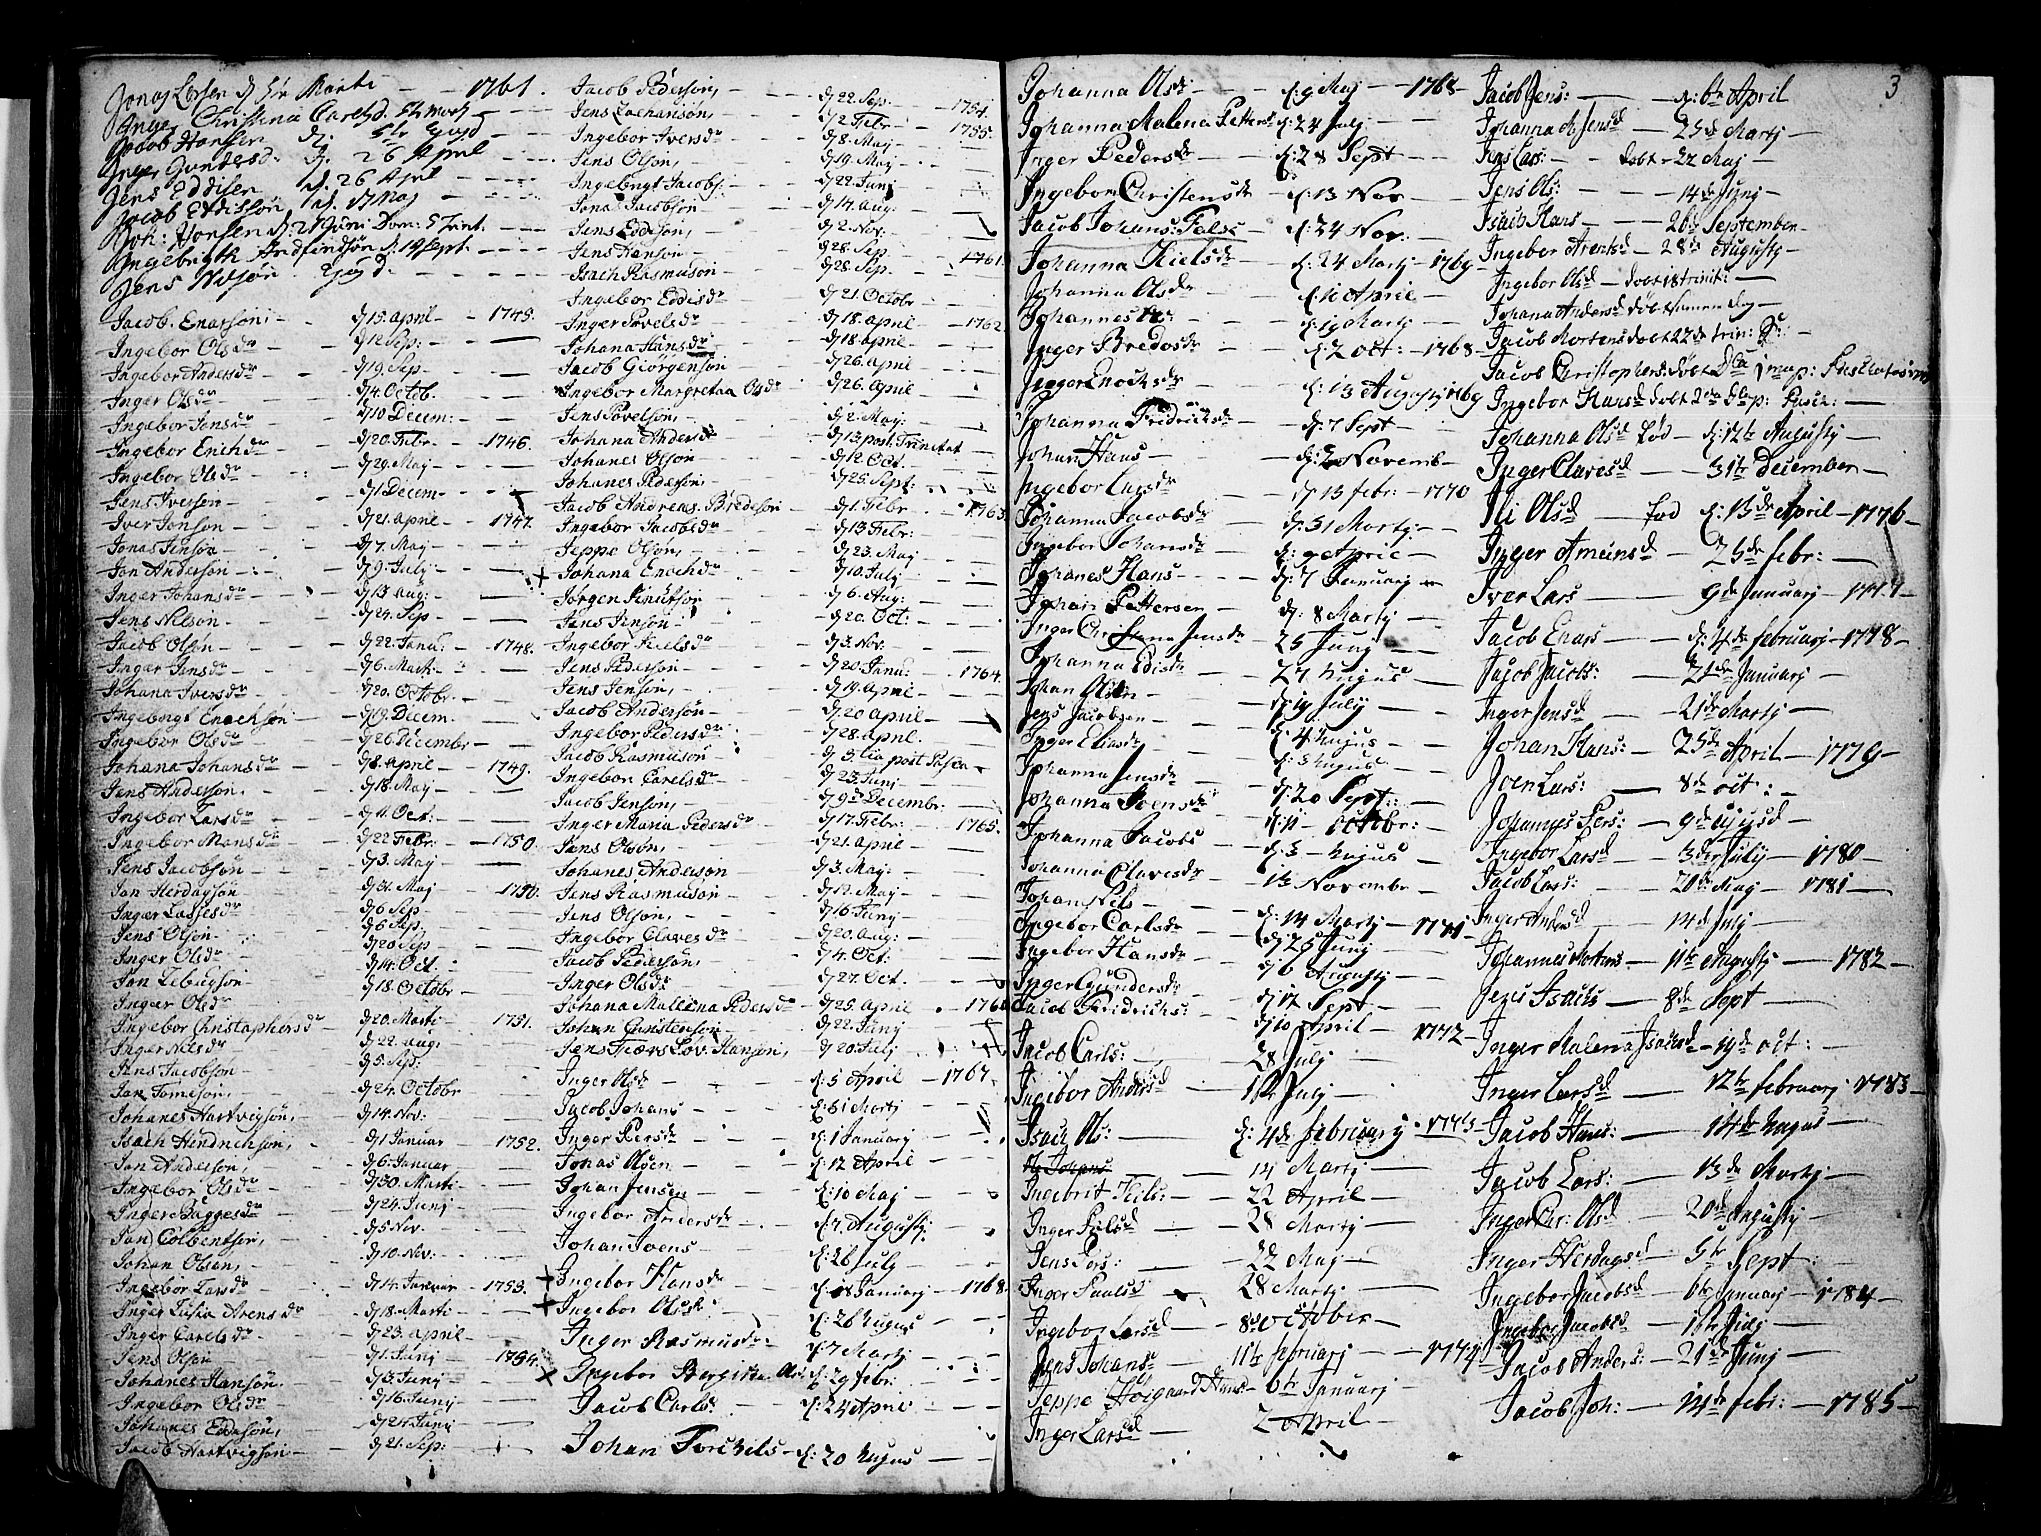 Jonas Larsen d. Marti — 1761.
Inger Christina Carlsd.
Jacob Hansen d. 5te
Inger d. 26 April
Jens Eddisen d. 26 April
Jacob Eddissøn d. 17 Maj
Joh: Hansen d.
Ingebrigth d. 14 Sept.
Jens Nilsøn
Jacob Enarsøn d 15. april — 1745.
Ingebor Olsdr d 12 Sep: —
Ingebor Andersdr d 19. Sep —
Inger Olsdr d 4. Octob. —
Ingebor Jensdr d 10 Decem: —
Ingebor Erichdr d 20. Febr. — 1746.
Ingebor Olsdr d 29. Maj —
Jens Iversøn d 1 Decem —
Iver Jonsøn d 21. april — 1747.
Jonas Jensøn d 7. Maj —
Jon Andersøn d 9. Julj —
Inger Johansdr d 13 Aug: —
Jens Nelson d 24. Sep —
Jacob Olsøn d 22. Janu: — 1748.
Inger Jensdr d 6. Marti —
Johana Iversdr d 20. Octobr. —
Ingebrigt Enochsøn d 19. Decem. —
Ingebor Olsdr d 26. Decembr —
Johana Johansdr d 8. april — 1749.
Jens Andersøn d 18. Maj —
Ingebor Larsdr d 11. Oct: —
Ingebor Monsdr d 22 Febr: — 1750.
Jens Jacobsøn d 3. Maj —
Jan Herdagsøn d 31. Maj — 1750.
Inger Lassesdr d 6 Sep. —
Jens Olson d 6. Sep. —
Inger Olsdr d 20 Sep. —
Jon d 14. Oct. —
Inger Olsdr d 18. Octobr —
Ingebor Christophersdr d 20. Marti — 1751.
Inger Nilsdr d 22. aug: —
Jens Jacobsøn d 5. Sep. —
Jan Tomesøn d 24. Octobr —
Johanes Hartvigsøn d 14. Nov: —
Isach Hendrichsøn d 1 Januar — 1752.
Jan Andersøn d 6. Januar —
Ingebor Olsdr d 30. Marti —
Inger Baggesdr d 24. Junj —
Jan Colbentsen d 5. Nov. —
Johan Olsen d 10. Nov: —
Ingebor Larsdr d 14. Januar — 1753.
Inger Arensdr d 18. Marti —
Inger Carelsdr d 23. april —
Jens Olson d 1. Junj — 1754.
Johanes Hansøn d 3. Junj —
Ingebor Olsdr d 16. Junj —
Johanes Eddesøn d 24. Junj —
Jacob Hartvigsøn d 21. Sep: —
Jacob Pedersøn d 22. Sep. — 1754.
Jens Zachariasøn d 2. Febr — 1755.
Ingebor Iversdr d 8. Maj —
Jens Olsøn d 19. Maj —
Ingebrigt Jacobs: d 22. Junj —
Jonas Jacobsøn d 14. aug: —
Jens Eddesøn d 2. Nov: —
Jens Hansøn d 28. Sep. — 1761.
Isach Rasmusøn d 28. Sep. —
Ingebor Eddisdr d 21. Octobr —
Inger Povelsdr d 18. april — 1762.
Johana Hansdr d 18. april —
Jacob Giörgensøn d 26. april —
Ingebor Margretaa Olsdr d 26. April —
Jens Povelsøn d 2. Maj —
Johana Andersdr d 13 post Trinitat —
Johanes Olsøn d 12 Oct. —
Johanes Pedersøn d 25. Sept: —
Jacob Andreas Bredesøn d 1. Febr — 1763.
Ingebor Jacobsdr d 13 Febr: —
Jeppe Olsøn d 23. Maj —
Johana Enochdr d 10. Julj —
Jørgen Knutsøn d 6. Aug: —
Jens Jensøn d 20. Oct: —
Ingebor Nielsdr d 3. Nov. —
Jens Pedersøn d 20. Janu: — 1764.
Jens Jensøn d 19. april —
Jacob Andersøn d 20 april —
Ingebor Pedersdr d 28. april. —
Jacob Rasmusøn d 3tia post Pasca
Ingebor Carelsdr d 23. Junj —
Jacob Jensøn d 9. Decembr: —
Inger Maria Pedersdr d 17. Febr: — 1765.
Jens Olsøn d 21. april —
Johanes Andersøn d 3. Maj: —
Jens Rasmusøn d 12. Maj —
Jens Olsøn d 16. Junj —
Ingebor Clavesdr d 20. Aug: —
Jacob Pedersøn d 4. Oct: —
Inger Olsdr d 27. Oct. —
Johana Mallena Pedersdr d 25. april —
Johan Christensøn d 22. Junj —
Jens Hansøn d 20 Julj —
Inger Olsd d: 5 April — 1767.
Jacob Johans d: 31 Martj —
Inger Persdr d: 1 Januarj —
Jonas Olsen d: 12 April —
Johan Jensen d: 10 Maj —
Ingebor Andersdr d: 7. Augustj —
Johan Ivens d: 26 July —
Ingebor Hansdr d: 18 Januarj — 1768.
Ingebor Olsdr d: 26 August —
Inger Rasmusdr d: 7 Martj —
Ingebor Bergitta Ols: d: 29 febr: —
Jacob Carls: d: 24 April —
Johan Torchils d: 20 August —
Johanna Olsdr d: 9 Maj — 1768
Johanna Malena Pettersdr d: 24 Julj —
Inger Pedersdr d: 28 Sept —
Ingebor Christensdr d: 13 Nov —
Jacob Johans: Falsk d: 24 Nov: —
Johanna Nielsdr d: 24 Martj — 1769
Johanna Olsdr d: 16 April —
Johannes d: 19 Martj —
Inger Bredosdr d: 2 Oct: — 1768
Inger Enochsdr d: 13 Augustj 1769
Johanna Fredrichsdr d: 7 Sept —
Johan Hans — d: 2 Novemb —
Ingebor Larsdr d. 13 febr: — 1770
Johanna Jacobsdr d: 31 Martj —
Ingebor Johansdr d: 9 April —
Johanes Hans — d: 7 Januarj —
Johan Pettersen d: 8 Martj —
Inger Christiana Jensdr 25 Junj —
Johanna Edisdr 27 August —
Johan Olsen d: 19 Julij —
Jens Jacobsen d: 4 August —
Inger Eliasdr d: 3 August —
Johanna Jensdr d: 20 Sept: —
Johanna Ivensdr d: 11 — Octobr: —
Johanna Jacobs d: 3 — August —
Johanna Clavesdr 1te Novembr —
Johan Nils — d: 14 Martj — 1771
Ingebor Carlsdr d 25 Junj —
Ingebor Hansdr d 6 Augustj —
Inger Gundersdr d 12 Sept —
Jacob Fredrichs: d 10 April — 1772
Jacob Carls: 28 Julj —
Ingebor Andersd 12 Julj —
Isach Ols: d: 4de februarj — 1773
Johans 14 Martj —
Ingebrit Nils: 22 April —
Inger Palsd 28 Martj —
Jens Pers: 22 Maj —
Inger Paulsd 28 Martj —
Ingebor Larsd 8 October —
Jens Johans 11te februarj — 1774
Jeppe Holgaard Hans 6te Januarj —
Inger Larsd 2 April —
3
Jacob Jens: — d: 6te April
Johanna Jensd — 25de Martj —
Jens Lars: — døbt — 22 Maj —
Jens Ols: — 14de Junj —
Isach Hans — 26de September —
Ingebor Arentsd — 28de Augustj —
Ingebor Olsd — døbt trinit: —
Johanna Andersd døbt samme dag —
Jacob Mortens døbt 22de trin: —
Jacob Christophers: døbt
Ingebor Hansd døbt
Johanna Olsd fød — d: 12te Augustj —
Inger Clavesd — 31te December —
Ili Olsd — fød d: 13de April — 1776 —
Inger Amunsd — 25de febr: —
Iver Lars — 9de Januarj — 1777 —
Jacob Enars — d: 4de februarj — 1778 —
Jacob Jacobs: — 21de Januarj —
Inger Jensd — 21de Martj —
Johan Hans: — 25de April — 1779 —
Joen Lars: — 8de oct: —
Johannes Pers: — 9de
Ingebor Larsd — 3die Julij — 1780 —
Jacob Lars: — 20de Maj — 1781 —
Inger Andersd — 14de Julj —
Johannes Mortens — 11te Augustj — 1782 —
Jens Isachs — 8de Sept —
Inger Malena Isachsd — 19de oct: —
Inger Larsd — 12te februarj — 1783 —
Jacob Hans: — 14de August —
Jacob Lars: — 13de Martj —
Inger Chr: Olsd — 20de Augustj —
Inger Herdagsd — 5te Sept: —
Ingebor Jacobsd — 6te Januarj — 1784 —
Ingebor Jacobsd — 1te Julj —
Jacob Anders: — 21de Junj —
Jacob Joh: — 14de febr: — 1785 —